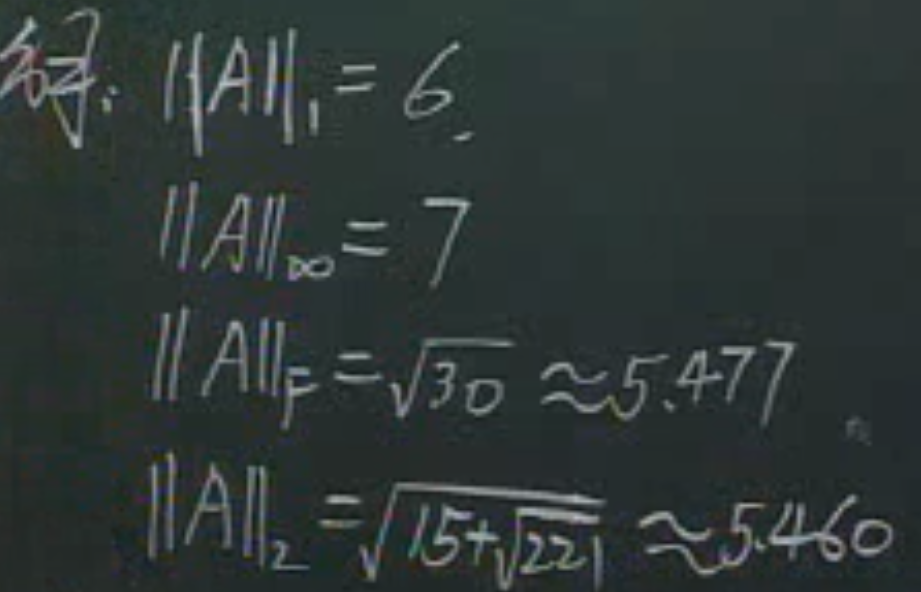 解: ||A||₁ = 6
||A||∞ = 7
||A||F = √30 ≈ 5.477
||A||₂ = √(15+√221) ≈ 5.460